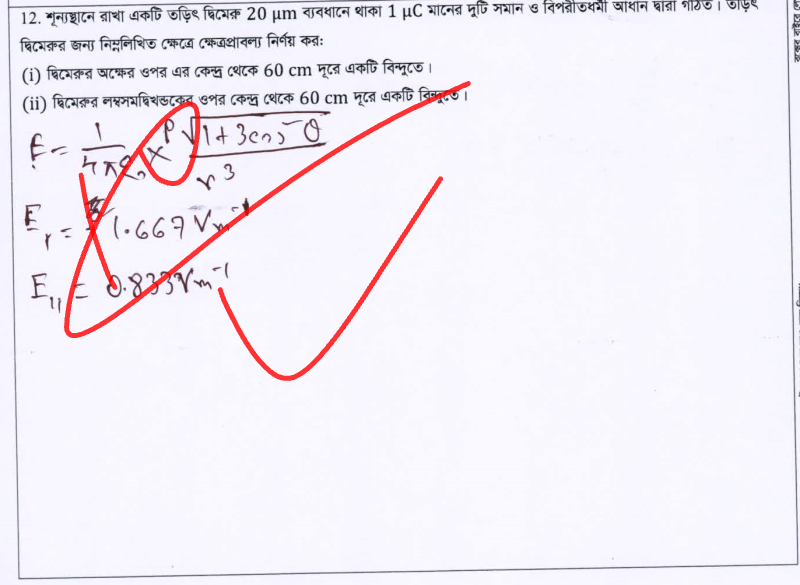 12. শূন্যস্থানে রাখা একটি তড়িৎ দ্বিমেরু 20 μm ব্যবধানে থাকা 1 μC মানের দুটি সমান ও বিপরীতধর্মী আধান দ্বারা গঠিত। তড়িৎ
দ্বিমেরুর জন্য নিম্নলিখিত ক্ষেত্রে ক্ষেত্রপ্রাবল্য নির্ণয় কর:
(i) দ্বিমেরুর অক্ষের ওপর এর কেন্দ্র থেকে 60 cm দূরে একটি বিন্দুতে।
(ii) দ্বিমেরুর লম্বসমদ্বিখন্ডকের ওপর কেন্দ্র থেকে 60 cm দূরে একটি বিন্দুতে।
E = 1/4πε₀ × P√(1+3cos²θ)/r³
E₁ = 1.667 Vm⁻¹
E₁₁ = 0.833 Vm⁻¹